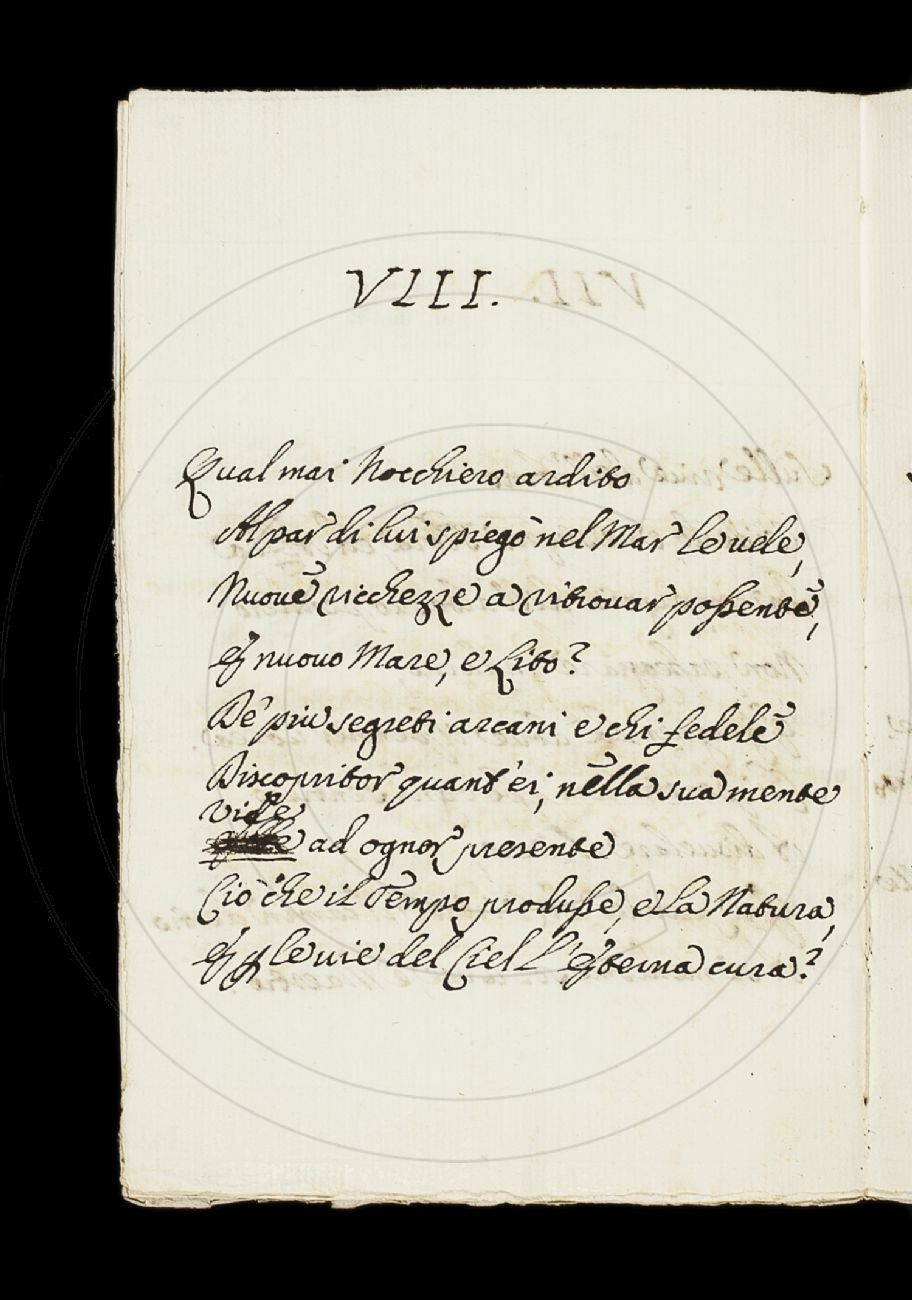 VIII.
Qual mai Nocchiero ardito
Al par di lui spiegò nel Mar le vele,
Nuove ricchezze a ritrovar possente,
E nuovo Mare, e Lito?
De' piu segreti arcani e chi fedele
Discopritor quant'ei, nella sua mente
Vide
ad ognor presente
Ciò che il Tempo produsse, e la Natura,
E p le vie del Ciel l'Eterna cura?